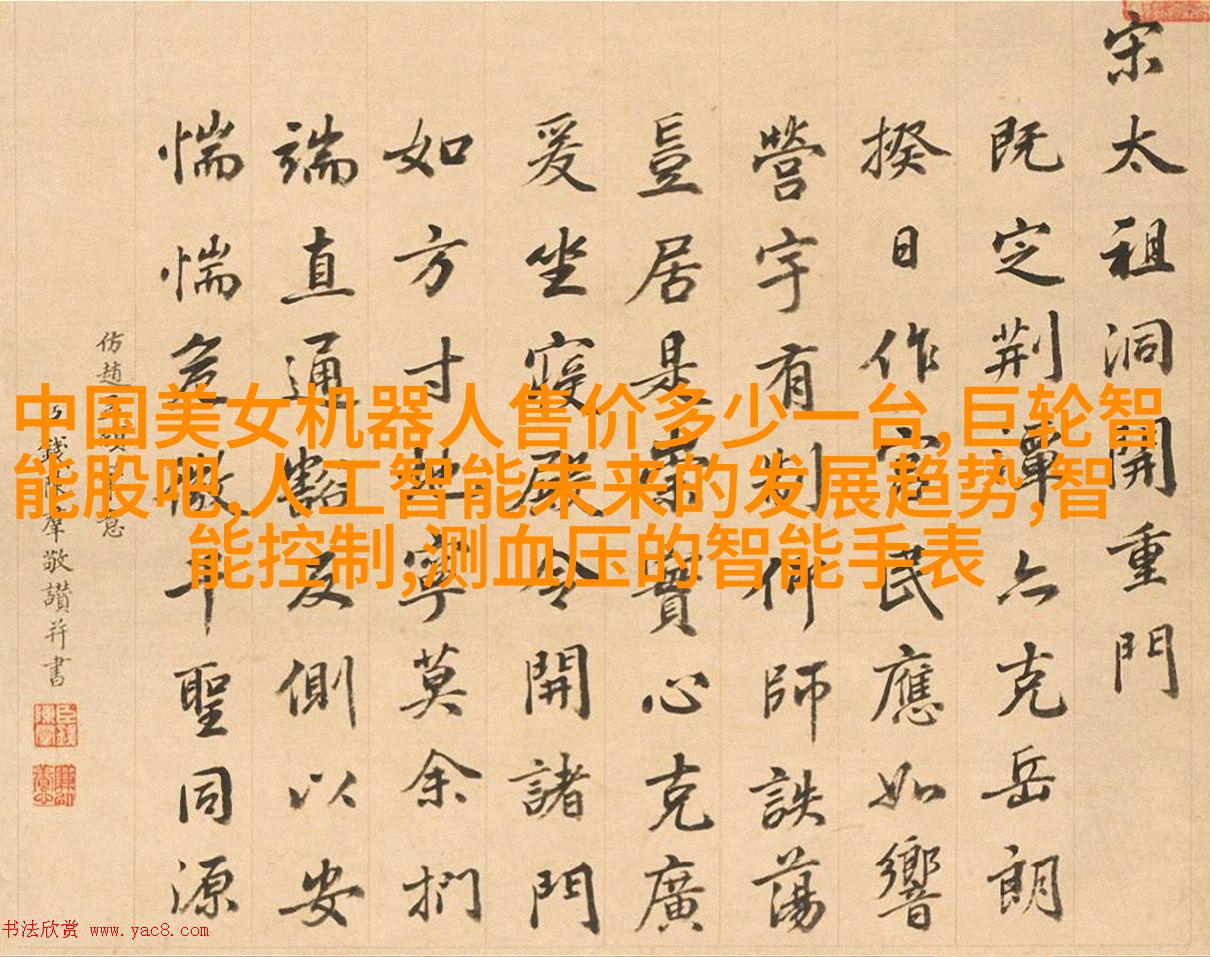 中国美女机器人售价多少一台,巨轮智
能股吧,人工智能未来的发展趋势,智
能控制,测血压的智能手表
宋太祖洞開重門
既定荆潭克岳朗
揆日作宮民應如響
營宇有制何師詄蕩
豈居是實心克廣
爰坐寝殿令開諸門
如方寸地寧莫余捫
端直通豁反側以安
惴惴危微千聖同源
仿趙意
錢陳羣敬讚并書
书法欣赏 www.yac8.com